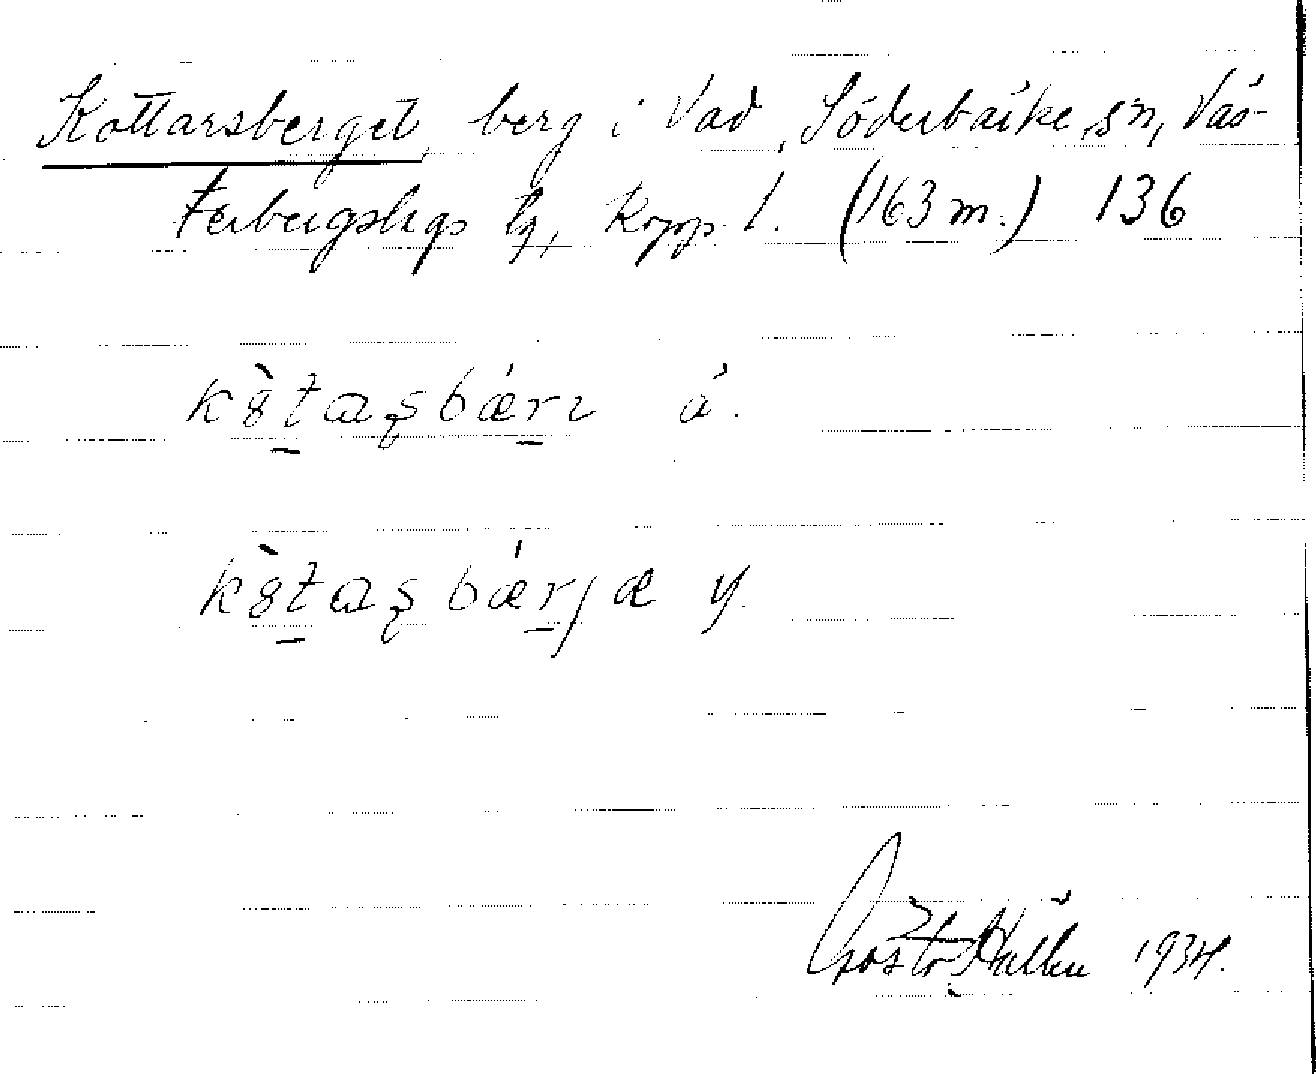 Kottarsberget, berg i Vad, Söderbärke sn, Väs-
terbergslags tg, Kopp. l. (163 m.) 136
kȣ̀taʂbǽrı å.
kȣ̀taʂbǽrjæ y.
Gösta Hallén 1934.